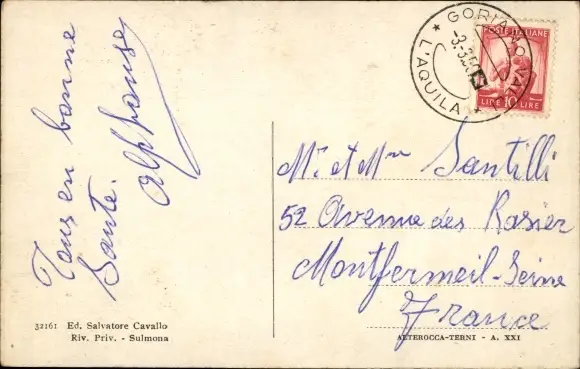 Tous en bonne
Santé.
Alphonse
GORIANO VAL
L'AQUILA
POSTE ITALIANE
LIRE 10 LIRE
Mr. et Mme Santilli
52 Avenue des Rosier
Montfermeil-Seine
France
32161 Ed. Salvatore Cavallo
Riv. Priv. - Sulmona
ALTEROCCA-TERNI - A. XXI